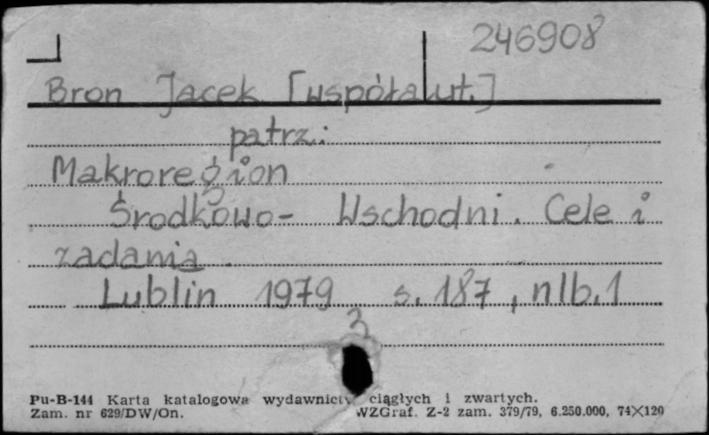 246908
Bron Jacek [współaut.]
patrz:
Makroregion
Środkowo- Wschodni. Cele i
zadania.
Lublin 1979 s. 187, nlb. 1
3
Pu-B-144 Karta katalogowa wydawnictw ciągłych i zwartych.
Zam. nr 629/DW/On. WZGraf. Z-2 zam. 379/79, 6.250.000, 74×120